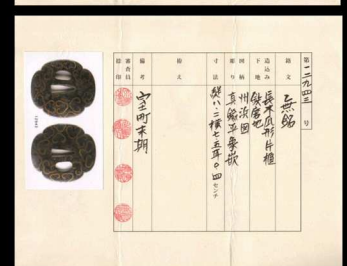 第一二九四三号
銘文
無銘
造込み
長木瓜形片櫃
下地
鉄磨地
図柄
州浜図
彫り
真鍮平象嵌
寸法
縦八・二横七・五耳〇・四センチ
拵え
備考
室町末期
審査員
印